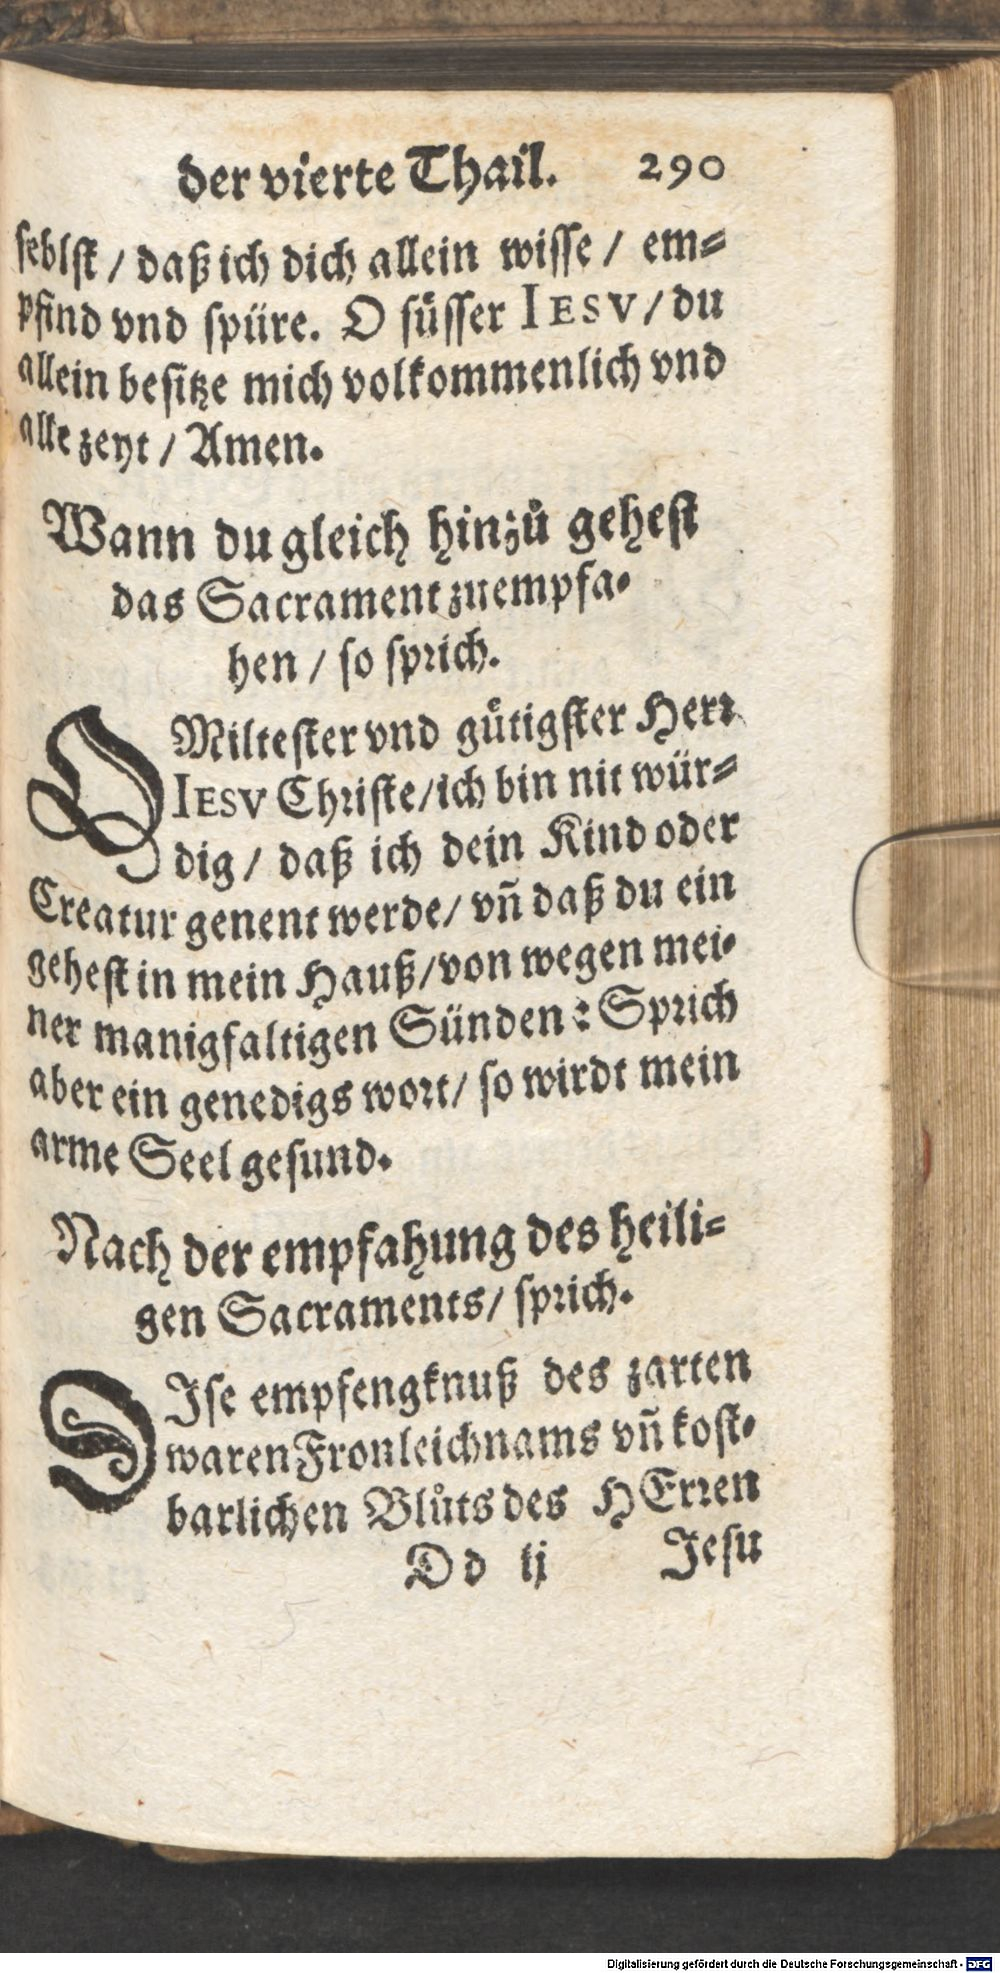 der vierte Thail. 290
seblst / daß ich dich allein wisse / em⸗
pfind vnd spüre. O sůsser IESV / du
allein besitze mich volkommenlich vnd
alle zeyt / Amen.
Wann du gleich hinzů gehest
das Sacrament zuempfa⸗
hen / so sprich.
O Miltester vnd gůtigster Herr
IESV Christe / ich bin nit wür⸗
dig / daß ich dein Kind oder
Creatur genent werde / vn̄ daß du ein
gehest in mein Hauß / von wegen mei⸗
ner manigfaltigen Sünden: Sprich
aber ein genedigs wort / so wirdt mein
arme Seel gesund.
Nach der empfahung des heili⸗
gen Sacraments / sprich.
DIse empfengknuß des zarten
waren Fronleichnams vn̄ kost⸗
barlichen Blůts des HErren
Dd ij Jesu
Digitalisierung gefördert durch die Deutsche Forschungsgemeinschaft - DFG